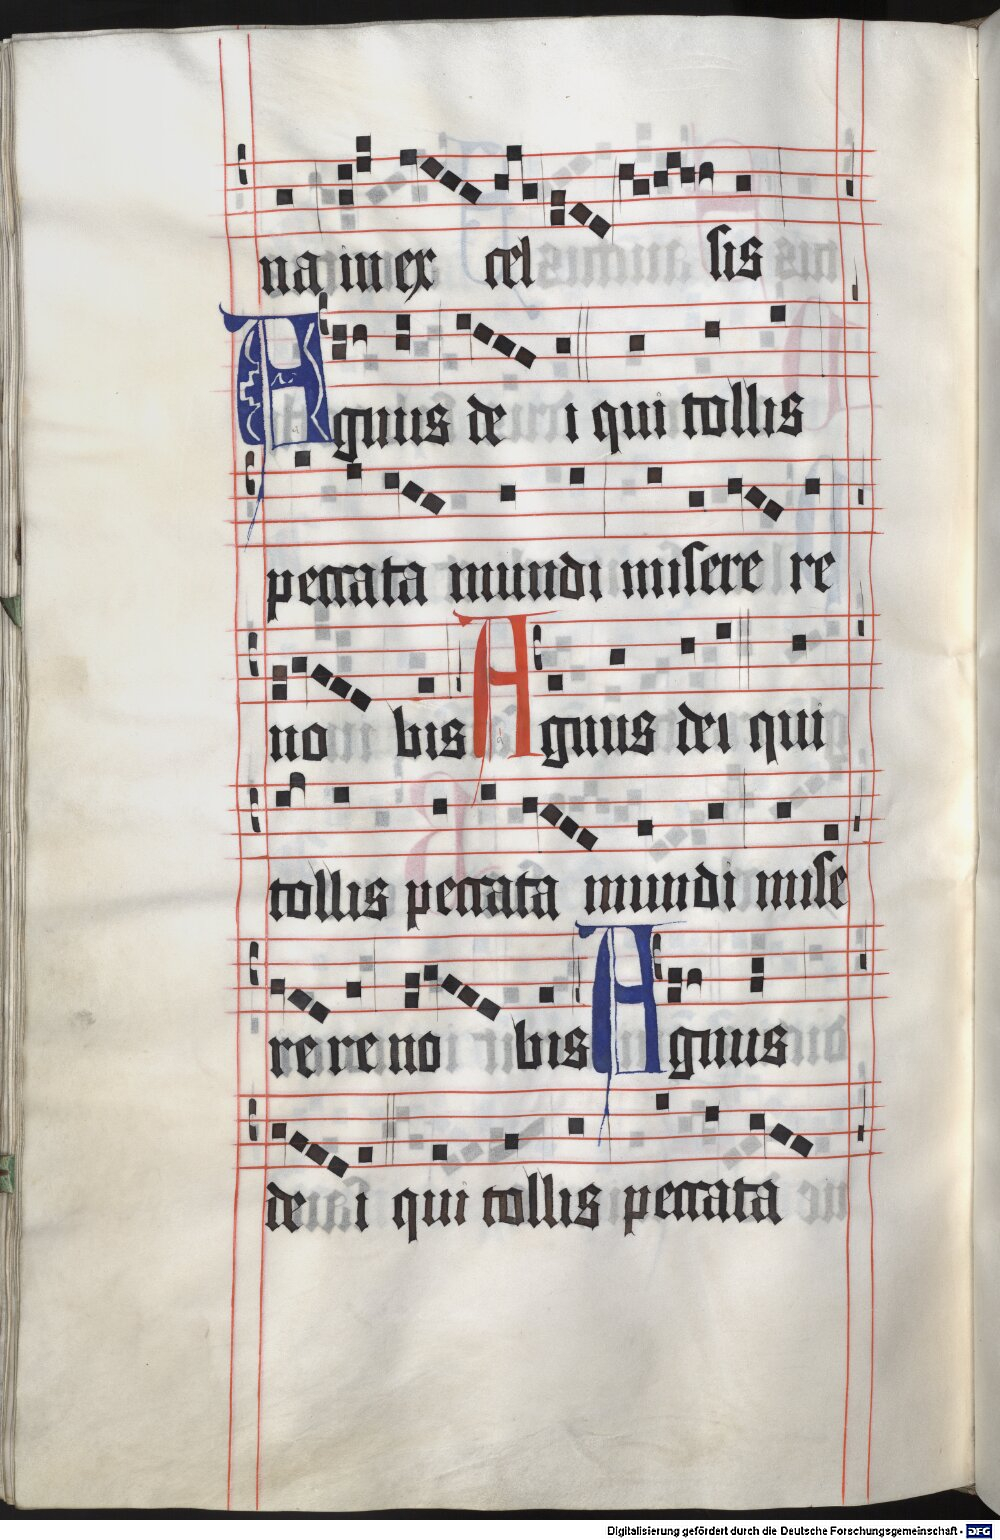 na in ex cel sis
Agnus de i qui tollis
peccata mundi miserere re
no bis Agnus dei qui
tollis peccata mundi mise
re re no bis Agnus
de i qui tollis peccata
Digitalisierung gefördert durch die Deutsche Forschungsgemeinschaft - DFG